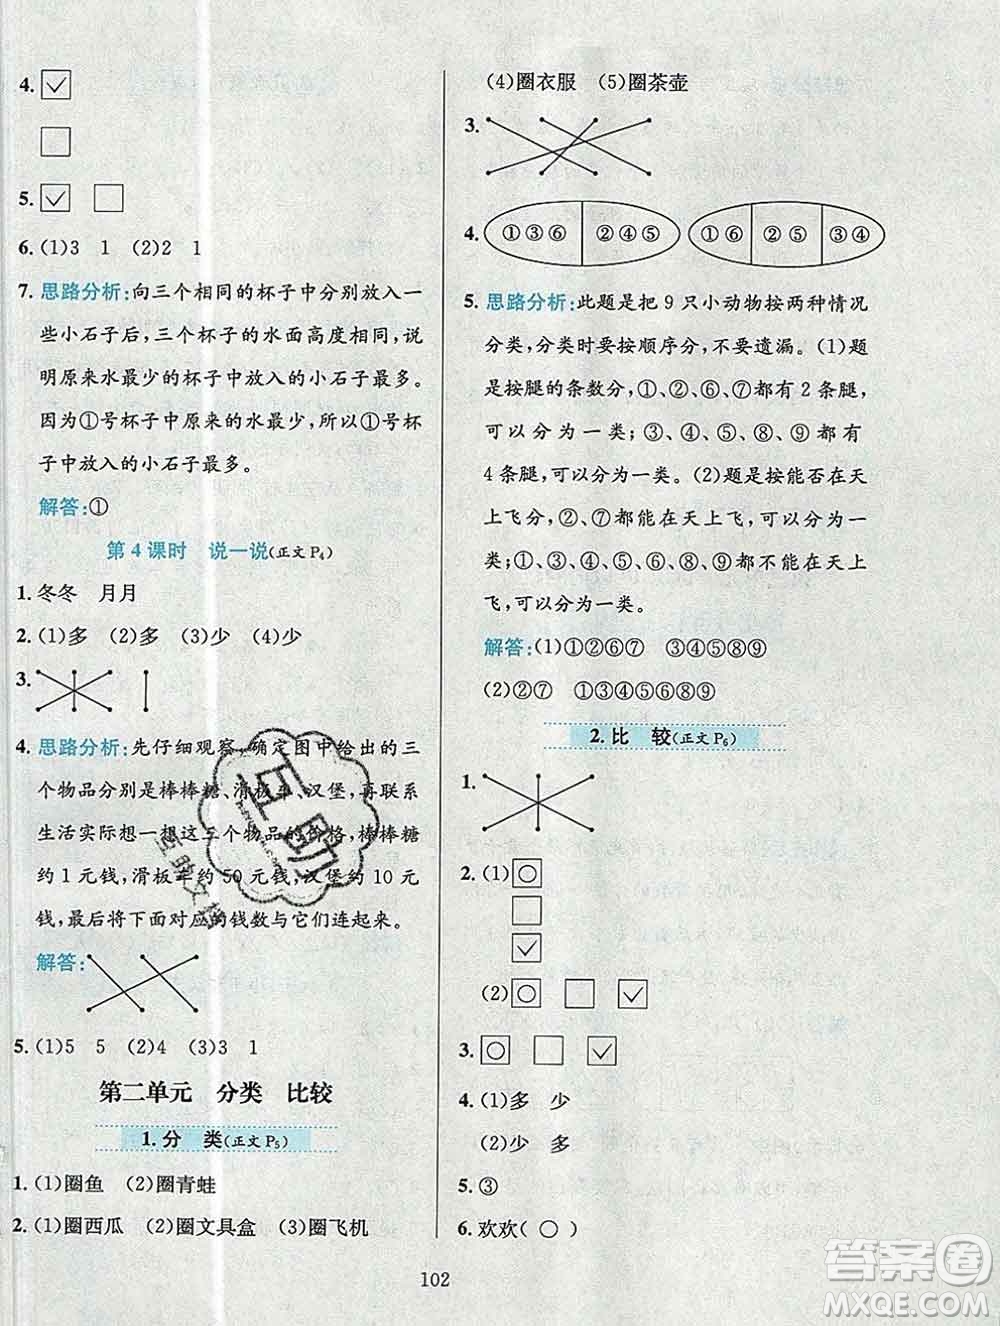 4. ✓
5. ✓
6. (1)3 1 (2)2 1
7. 思路分析:向三个相同的杯子中分别放入一
些小石子后,三个杯子的水面高度相同,说
明原来水最少的杯子中放入的小石子最多。
因为①号杯子中原来的水最少,所以①号杯
子中放入的小石子最多。
解答:①
第4课时 说一说(正文P4)
1. 冬冬 月月
2. (1)多 (2)多 (3)少 (4)少
3.
4. 思路分析:先仔细观察,确定图中给出的三
个物品分别是棒棒糖、滑板车、汉堡,再联系
生活实际想一想这三个物品的价格,棒棒糖
约1元钱,滑板车约50元钱,汉堡约10元
钱,最后将下面对应的钱数与它们连起来。
解答:
5. (1)5 5 (2)4 (3)3 1
第二单元 分类 比较
1.分 类(正文P5)
1. (1)圈鱼 (2)圈青蛙
2. (1)圈西瓜 (2)圈文具盒 (3)圈飞机
(4)圈衣服 (5)圈茶壶
3.
4. ①③⑥ ②④⑤ ①⑥ ②⑤ ③④
5. 思路分析:此题是把9只小动物按两种情况
分类,分类时要按顺序分,不要遗漏。(1)题
是按腿的条数分,①、②、⑥、⑦都有2条腿,
可以分为一类;③、④、⑤、⑧、⑨都有
4条腿,可以分为一类。(2)题是按能否在天
上飞分,②、⑦都能在天上飞,可以分为一
类;①、③、④、⑤、⑥、⑧、⑨都不能在天上
飞,可以分为一类。
解答:(1)①②⑥⑦ ③④⑤⑧⑨
(2)②⑦ ①③④⑤⑥⑧⑨
2.比 较(正文P6)
1.
2. (1)○
✓
(2)○ ✓
3. ○ ✓
4. (1)多 少
(2)少 多
5. ③
6. 欢欢( ○ )
102
互助
互助文档
答案圈
MXQE.COM